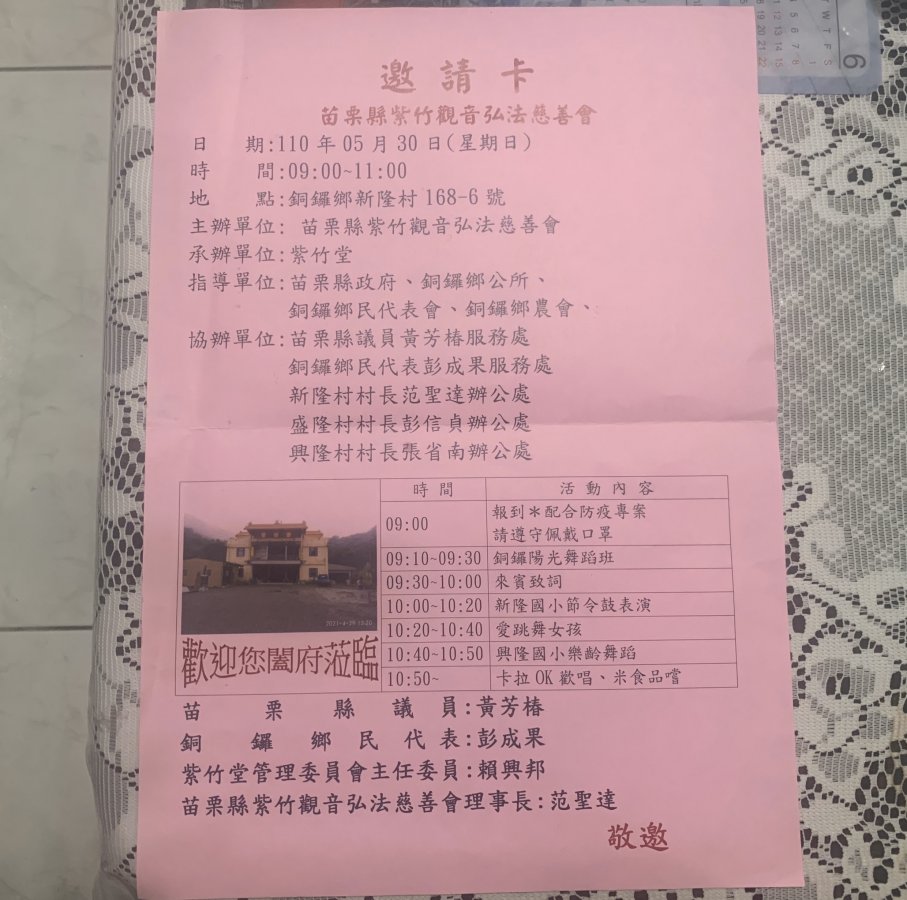 邀請卡
苗栗縣紫竹觀音弘法慈善會
日　期:110 年 05 月 30 日(星期日)
時　間:09:00~11:00
地　點:銅鑼鄉新隆村 168-6 號
主辦單位: 苗栗縣紫竹觀音弘法慈善會
承辦單位:紫竹堂
指導單位:苗栗縣政府、銅鑼鄉公所、
銅鑼鄉民代表會、銅鑼鄉農會、
協辦單位:苗栗縣議員黃芳椿服務處
銅鑼鄉民代表彭成果服務處
新隆村村長范聖達辦公處
盛隆村村長彭信貞辦公處
興隆村村長張省南辦公處
時間 活動內容
09:00 報到＊配合防疫專案
請遵守佩戴口罩
09:10~09:30 銅鑼陽光舞蹈班
09:30~10:00 來賓致詞
10:00~10:20 新隆國小節令鼓表演
10:20~10:40 愛跳舞女孩
10:40~10:50 興隆國小樂齡舞蹈
10:50~ 卡拉 OK 歡唱、米食品嚐
2021-4-29 10:20
歡迎您闔府蒞臨
苗栗縣議員:黃芳椿
銅鑼鄉民代表:彭成果
紫竹堂管理委員會主任委員:賴興邦
苗栗縣紫竹觀音弘法慈善會理事長:范聖達
敬邀
6